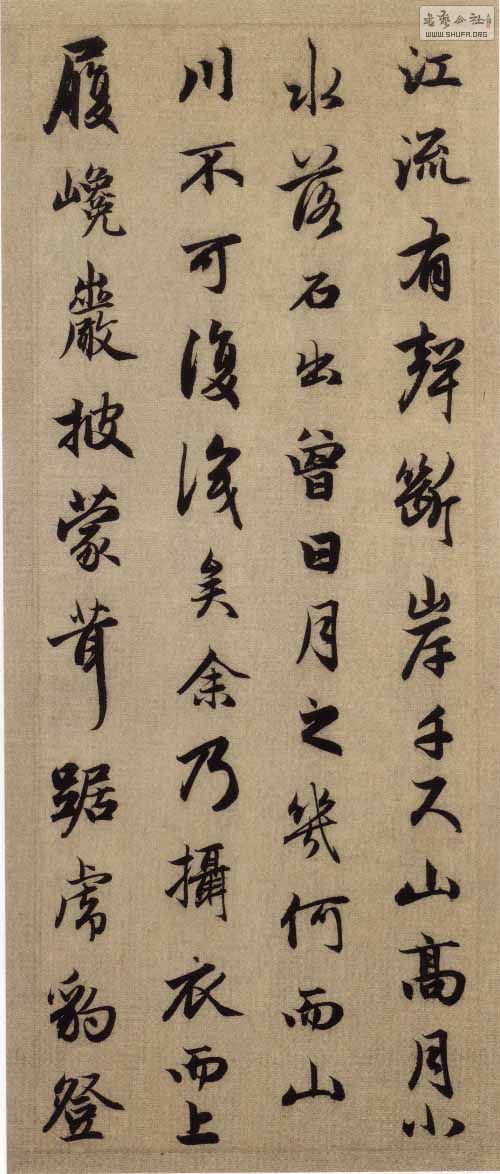 書藝公社
WWW.SHUFA.ORG
江流有聲斷岸千尺山高月小
水落石出曾日月之幾何而山
川不可復識矣余乃攝衣而上
履巉巖披蒙茸踞虎豹登